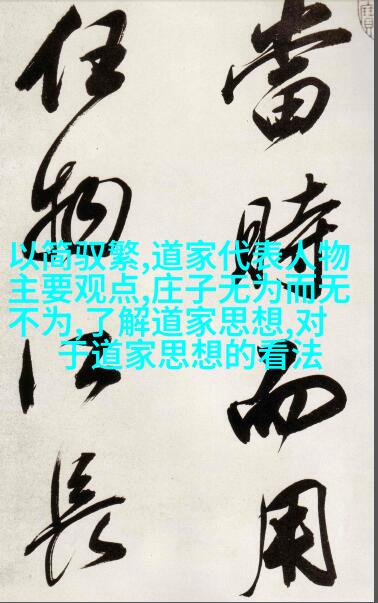 當時而用
任物以長
以简驭繁,道家代表人物
主要观点,庄子无为而无
不为,了解道家思想,对
于道家思想的看法